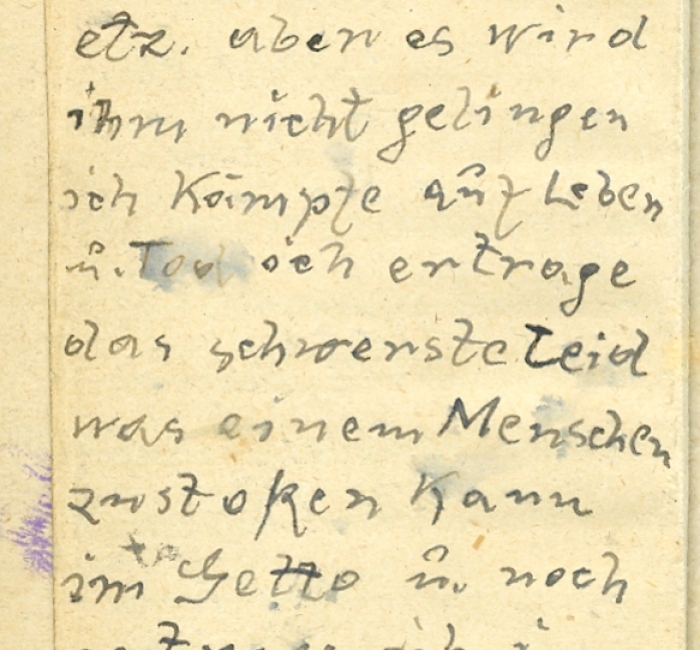 etz. aber es wird
ihm nicht gelingen
ich kämpfe auf Leben
u. Tod ich ertrage
das schwerste Leid
was einem Menschen
zustoßen kann
im Getto u. noch